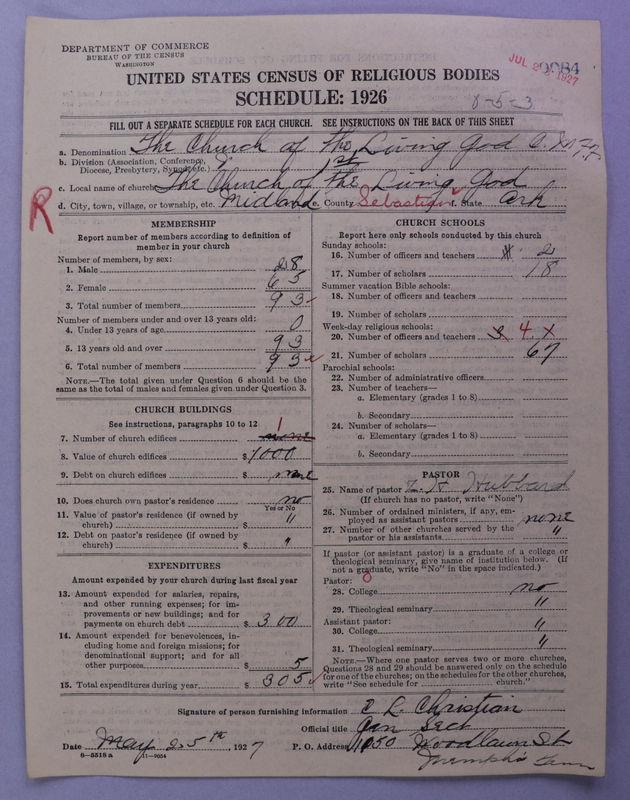 DEPARTMENT OF COMMERCE
BUREAU OF THE CENSUS
WASHINGTON
JUL 2 1927
0084
UNITED STATES CENSUS OF RELIGIOUS BODIES
SCHEDULE: 1926
8-5-3
FILL OUT A SEPARATE SCHEDULE FOR EACH CHURCH. SEE INSTRUCTIONS ON THE BACK OF THIS SHEET
a. Denomination The Church of the Living God
b. Division (Association, Conference,
Diocese, Presbytery, Synod, etc.)
c. Local name of church The Church of the Living God
R
d. City, town, village, or township, etc. Midland e. County Sebastian f. State Ark
MEMBERSHIP
Report number of members according to definition of
member in your church
Number of members, by sex:
1. Male 28
2. Female 65
3. Total number of members 93
Number of members under and over 13 years old:
4. Under 13 years of age 0
5. 13 years old and over 93
6. Total number of members 93
NOTE.—The total given under Question 6 should be the
same as the total of males and females given under Question 3.
CHURCH BUILDINGS
See instructions, paragraphs 10 to 12
7. Number of church edifices none 1
8. Value of church edifices $ 1000
9. Debt on church edifices $ none
10. Does church own pastor's residence no
Yes or No
11. Value of pastor's residence (if owned by
church) $ "
12. Debt on pastor's residence (if owned by
church) $ "
EXPENDITURES
Amount expended by your church during last fiscal year
13. Amount expended for salaries, repairs,
and other running expenses; for im-
provements or new buildings; and for
payments on church debt $ 300
14. Amount expended for benevolences, in-
cluding home and foreign missions; for
denominational support; and for all
other purposes $ 5
15. Total expenditures during year $ 305
CHURCH SCHOOLS
Report here only schools conducted by this church
Sunday schools:
16. Number of officers and teachers 2
17. Number of scholars 18
Summer vacation Bible schools:
18. Number of officers and teachers
19. Number of scholars
Week-day religious schools:
20. Number of officers and teachers 3 4 x
21. Number of scholars 67
Parochial schools:
22. Number of administrative officers
23. Number of teachers—
a. Elementary (grades 1 to 8)
b. Secondary
24. Number of scholars—
a. Elementary (grades 1 to 8)
b. Secondary
PASTOR
25. Name of pastor Z. H. Hubbard
(If church has no pastor, write "None")
26. Number of ordained ministers, if any, em-
ployed as assistant pastors none
27. Number of other churches served by the
pastor or his assistants "
If pastor (or assistant pastor) is a graduate of a college or
theological seminary, give name of institution below. (If
not a graduate, write "No" in the space indicated.)
Pastor:
28. College no
29. Theological seminary "
Assistant pastor:
30. College "
31. Theological seminary "
NOTE.—Where one pastor serves two or more churches,
Questions 28 and 29 should be answered only on the schedule
for one of the churches; on the schedules for the other churches,
write "See schedule for church."
Signature of person furnishing information C L. Christian
Official title Gen Sect
Date May 25th, 1927 P. O. Address 1050 Woodlawn St
8—5518 a 11—9054
Memphis Tenn